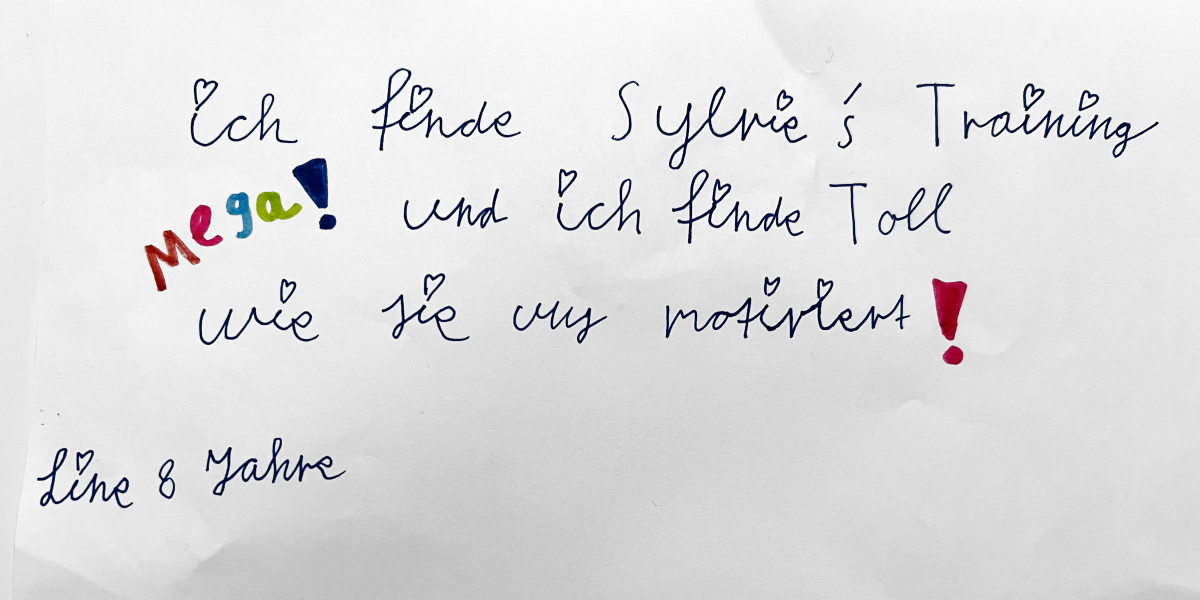 ich finde Sylvie´s Training
Mega! und ich finde Toll
wie sie uns motiviert!
Line 8 Jahre